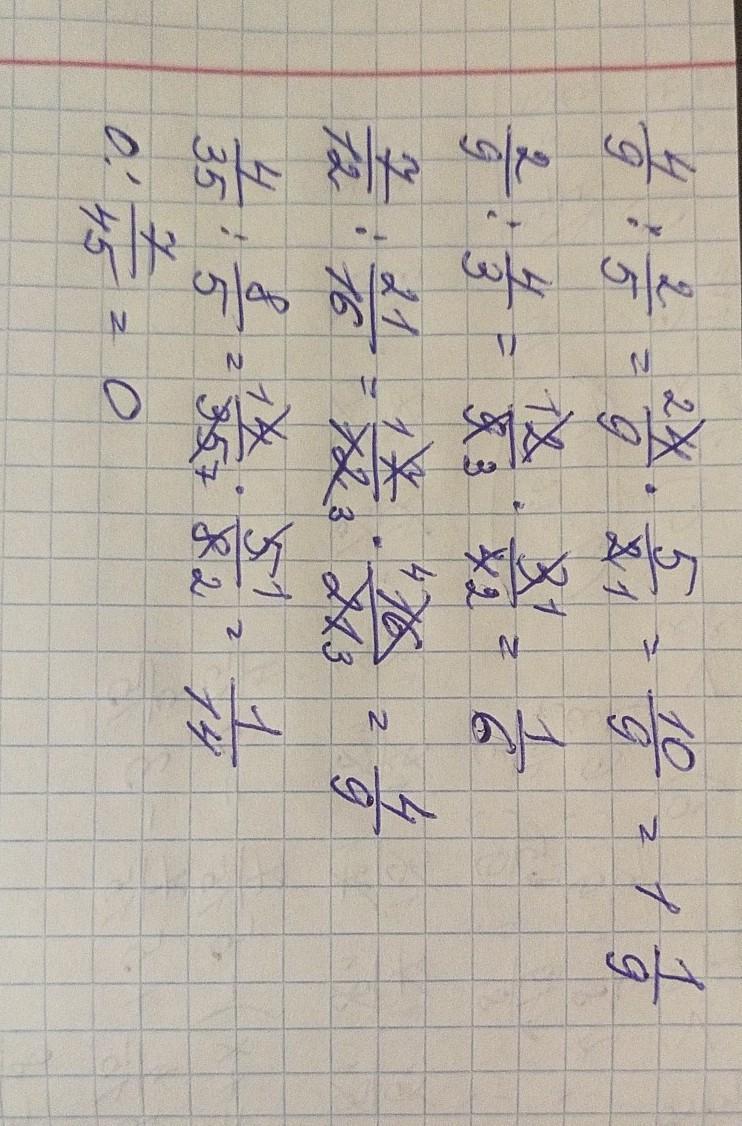 4/9 : 2/5 = 4/9 · 5/2 = 10/9 = 1 1/9
2/9 : 4/3 = 2/9 · 3/4 = 1/6
7/12 : 21/16 = 7/12 · 16/21 = 4/9
4/35 : 8/5 = 4/35 · 5/8 = 1/14
0 : 7/45 = 0